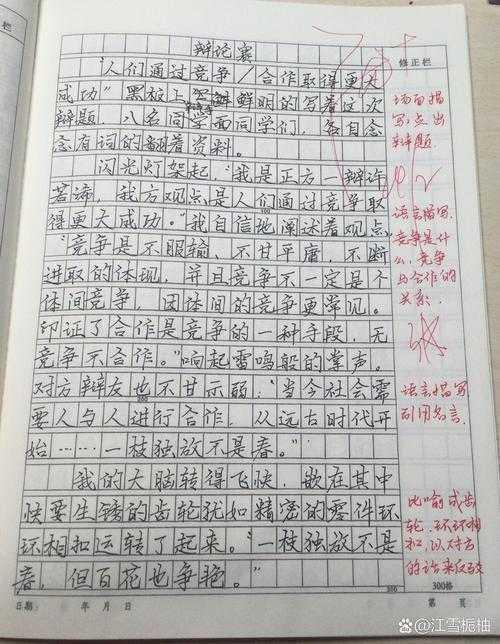 辩论赛
修正栏
"人们通过竞争/合作取得更大
成功"黑板上鲜明的写着这次
辩题,八名同学面同学们,各自念
念有词的翻着资料。
闪光灯架起,"我是正方一辩许
若谛,我方观点是人们通过竞争取
得更大成功。"我自信地阐述着观点,
"竞争是不服输、不甘平庸,不断
进取的体现,并且竞争不一定是个
体间竞争,团体间的竞争更常见。
印证了合作是竞争的一种手段,无
竞争不合作。"响起雷鸣般的掌声。
对方辩友也不甘示弱:"当今社会需
要人与人进行合作,从远古时代开
始……一枝独放不是春。"
我的大脑转得飞快,嵌在其中
快要生锈的齿轮犹如精密的零件环
环相扣运转了起来。"一枝独放不是
春,但百花也争艳。"
场面描
写,点出
辩题.
语言描写.
竞争是什
么,竞争
与合作的
关系.
语言描写
引用名言.
比喻成齿
轮,环环相
扣,以对方
的话来反驳
100
200
300
300格
日期: 年 月 日
第 页
Baidu百科 @江雪栀柚